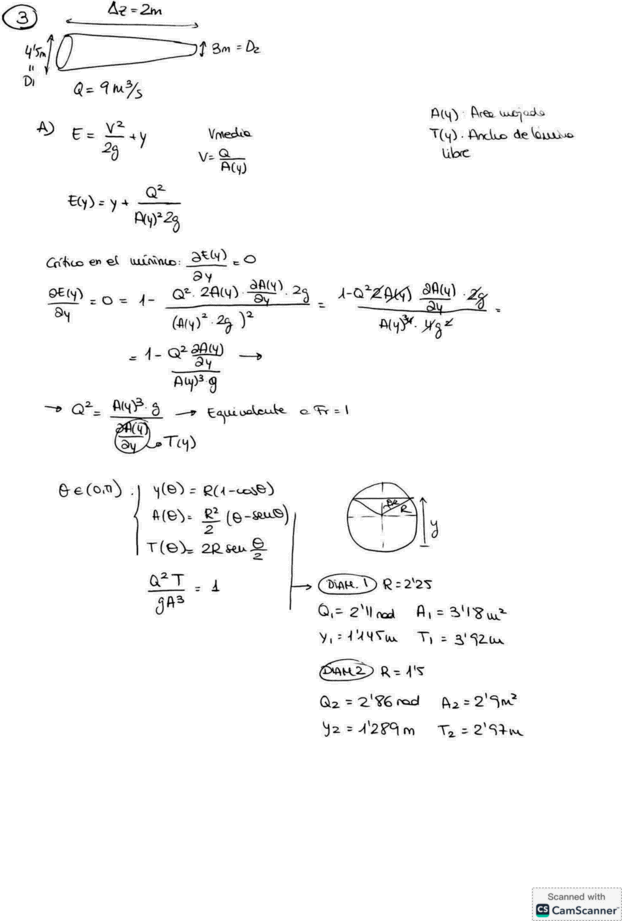 3
Δz = 2m
4'5m
"
D1
3m = D2
Q = 9 m³/s
A(y) · Area mojada
T(y) · Ancho de lámina
libre
A) E = V²/2g + y
Vmedia
V = Q/A(y)
E(y) = y + Q²/(A(y)² 2g)
Crítico en el mínimo: ∂E(y)/∂y = 0
∂E(y)/∂y = 0 = 1 - (Q² · 2A(y) · ∂A(y)/∂y · 2g)/(A(y)² · 2g)² = (1 - Q² 2A(y) ∂A(y)/∂y · 2g)/(A(y)⁴ · 4g²) =
= 1 - (Q² ∂A(y)/∂y)/(A(y)³ · g) →
→ Q² = (A(y)³ · g)/(∂A(y)/∂y) → Equivalente a Fr = 1
→ T(y)
θ ∈ (0,π) · y(θ) = R(1 - cosθ)
A(θ) = R²/2 (θ - senθ)
T(θ) = 2R sen θ/2
Q²T/gA³ = 1
R
y
DIAM. 1 R = 2'25
Q1 = 2'11 rad A1 = 3'18 m²
y1 = 1'145 m T1 = 3'92 m
DIAM 2 R = 1'5
Q2 = 2'86 rad A2 = 2'9 m²
y2 = 1'289 m T2 = 2'97 m
Scanned with
CS CamScanner